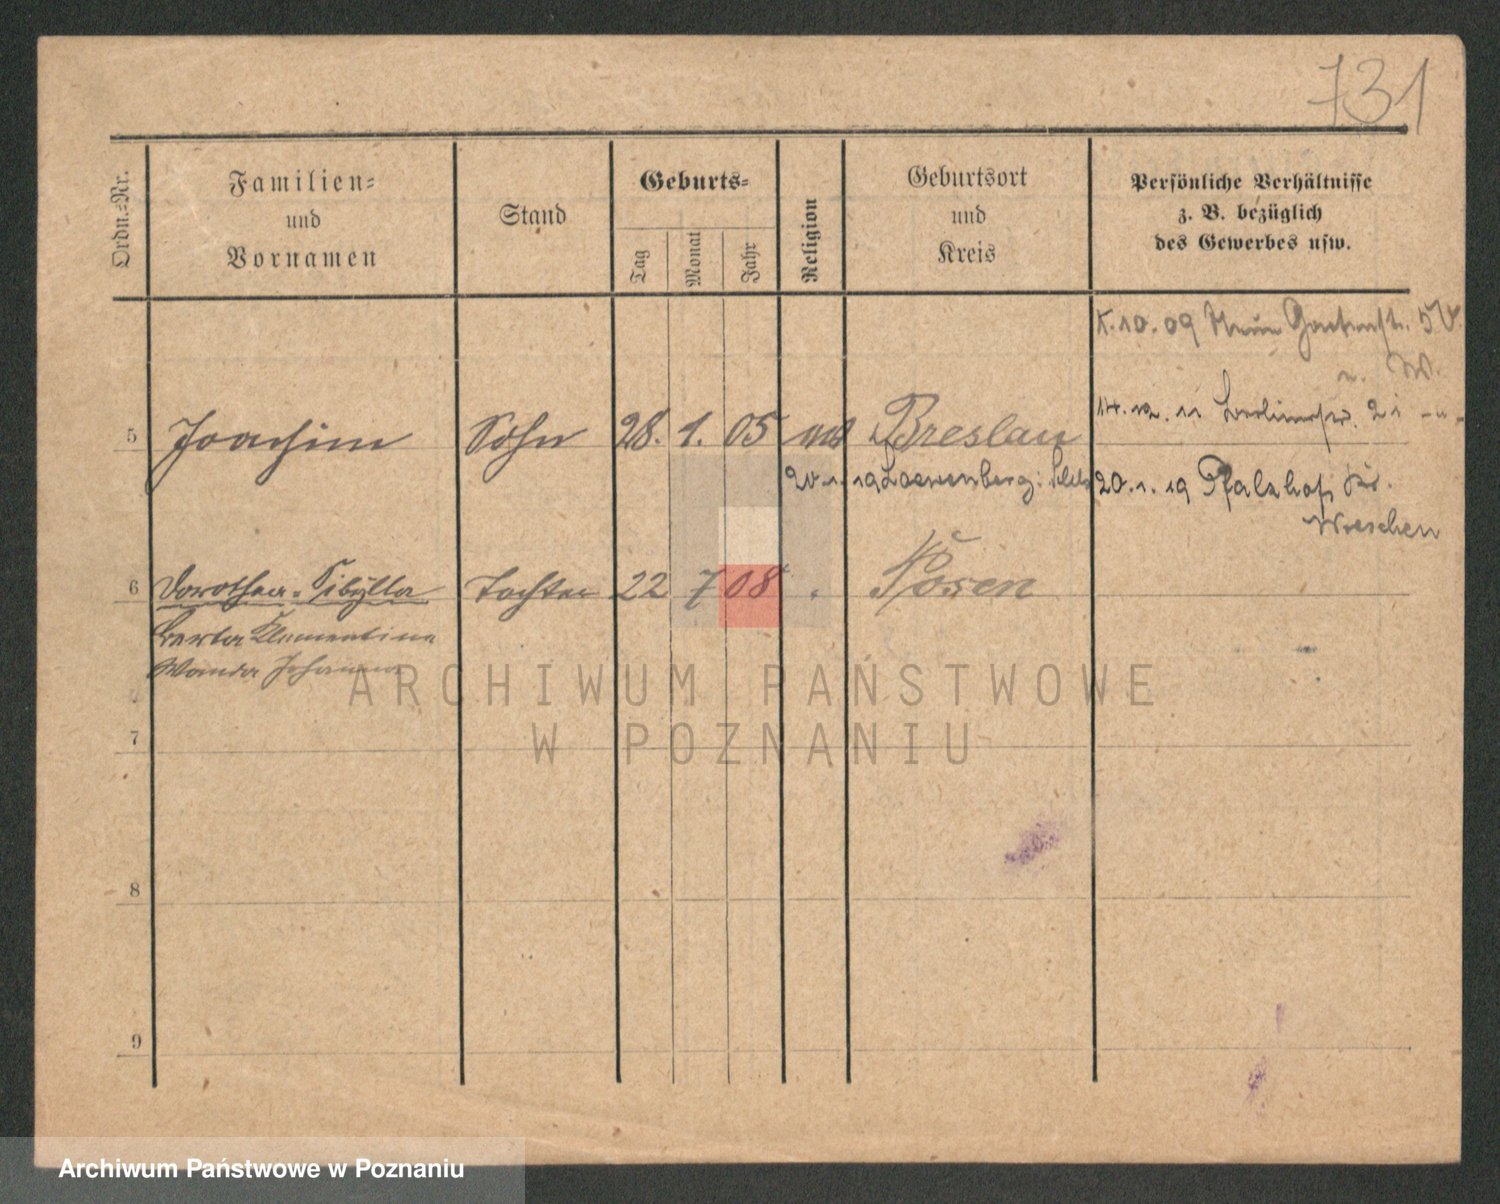 731
Ordn.-Nr.
Familien-
und
Vornamen
Stand
Geburts-
Tag
Monat
Jahr
Religion
Geburtsort
und
Kreis
Persönliche Verhältnisse
z. B. bezüglich
des Gewerbes usw.
10.09 Neue Gartenstr.
5 Joachim Sohn 28. 1. 05 Breslau
14.12.11 21
20.1.19 Loewenberg 20.1.19 Pfalzhof Kr.
Wreschen
6 Dorothea-Sibylla Tochter 22 7 08 Posen
Berta Klementine
Wanda Johanna
ARCHIWUM PAŃSTWOWE
W POZNANIU
7
8
9
Archiwum Państwowe w Poznaniu